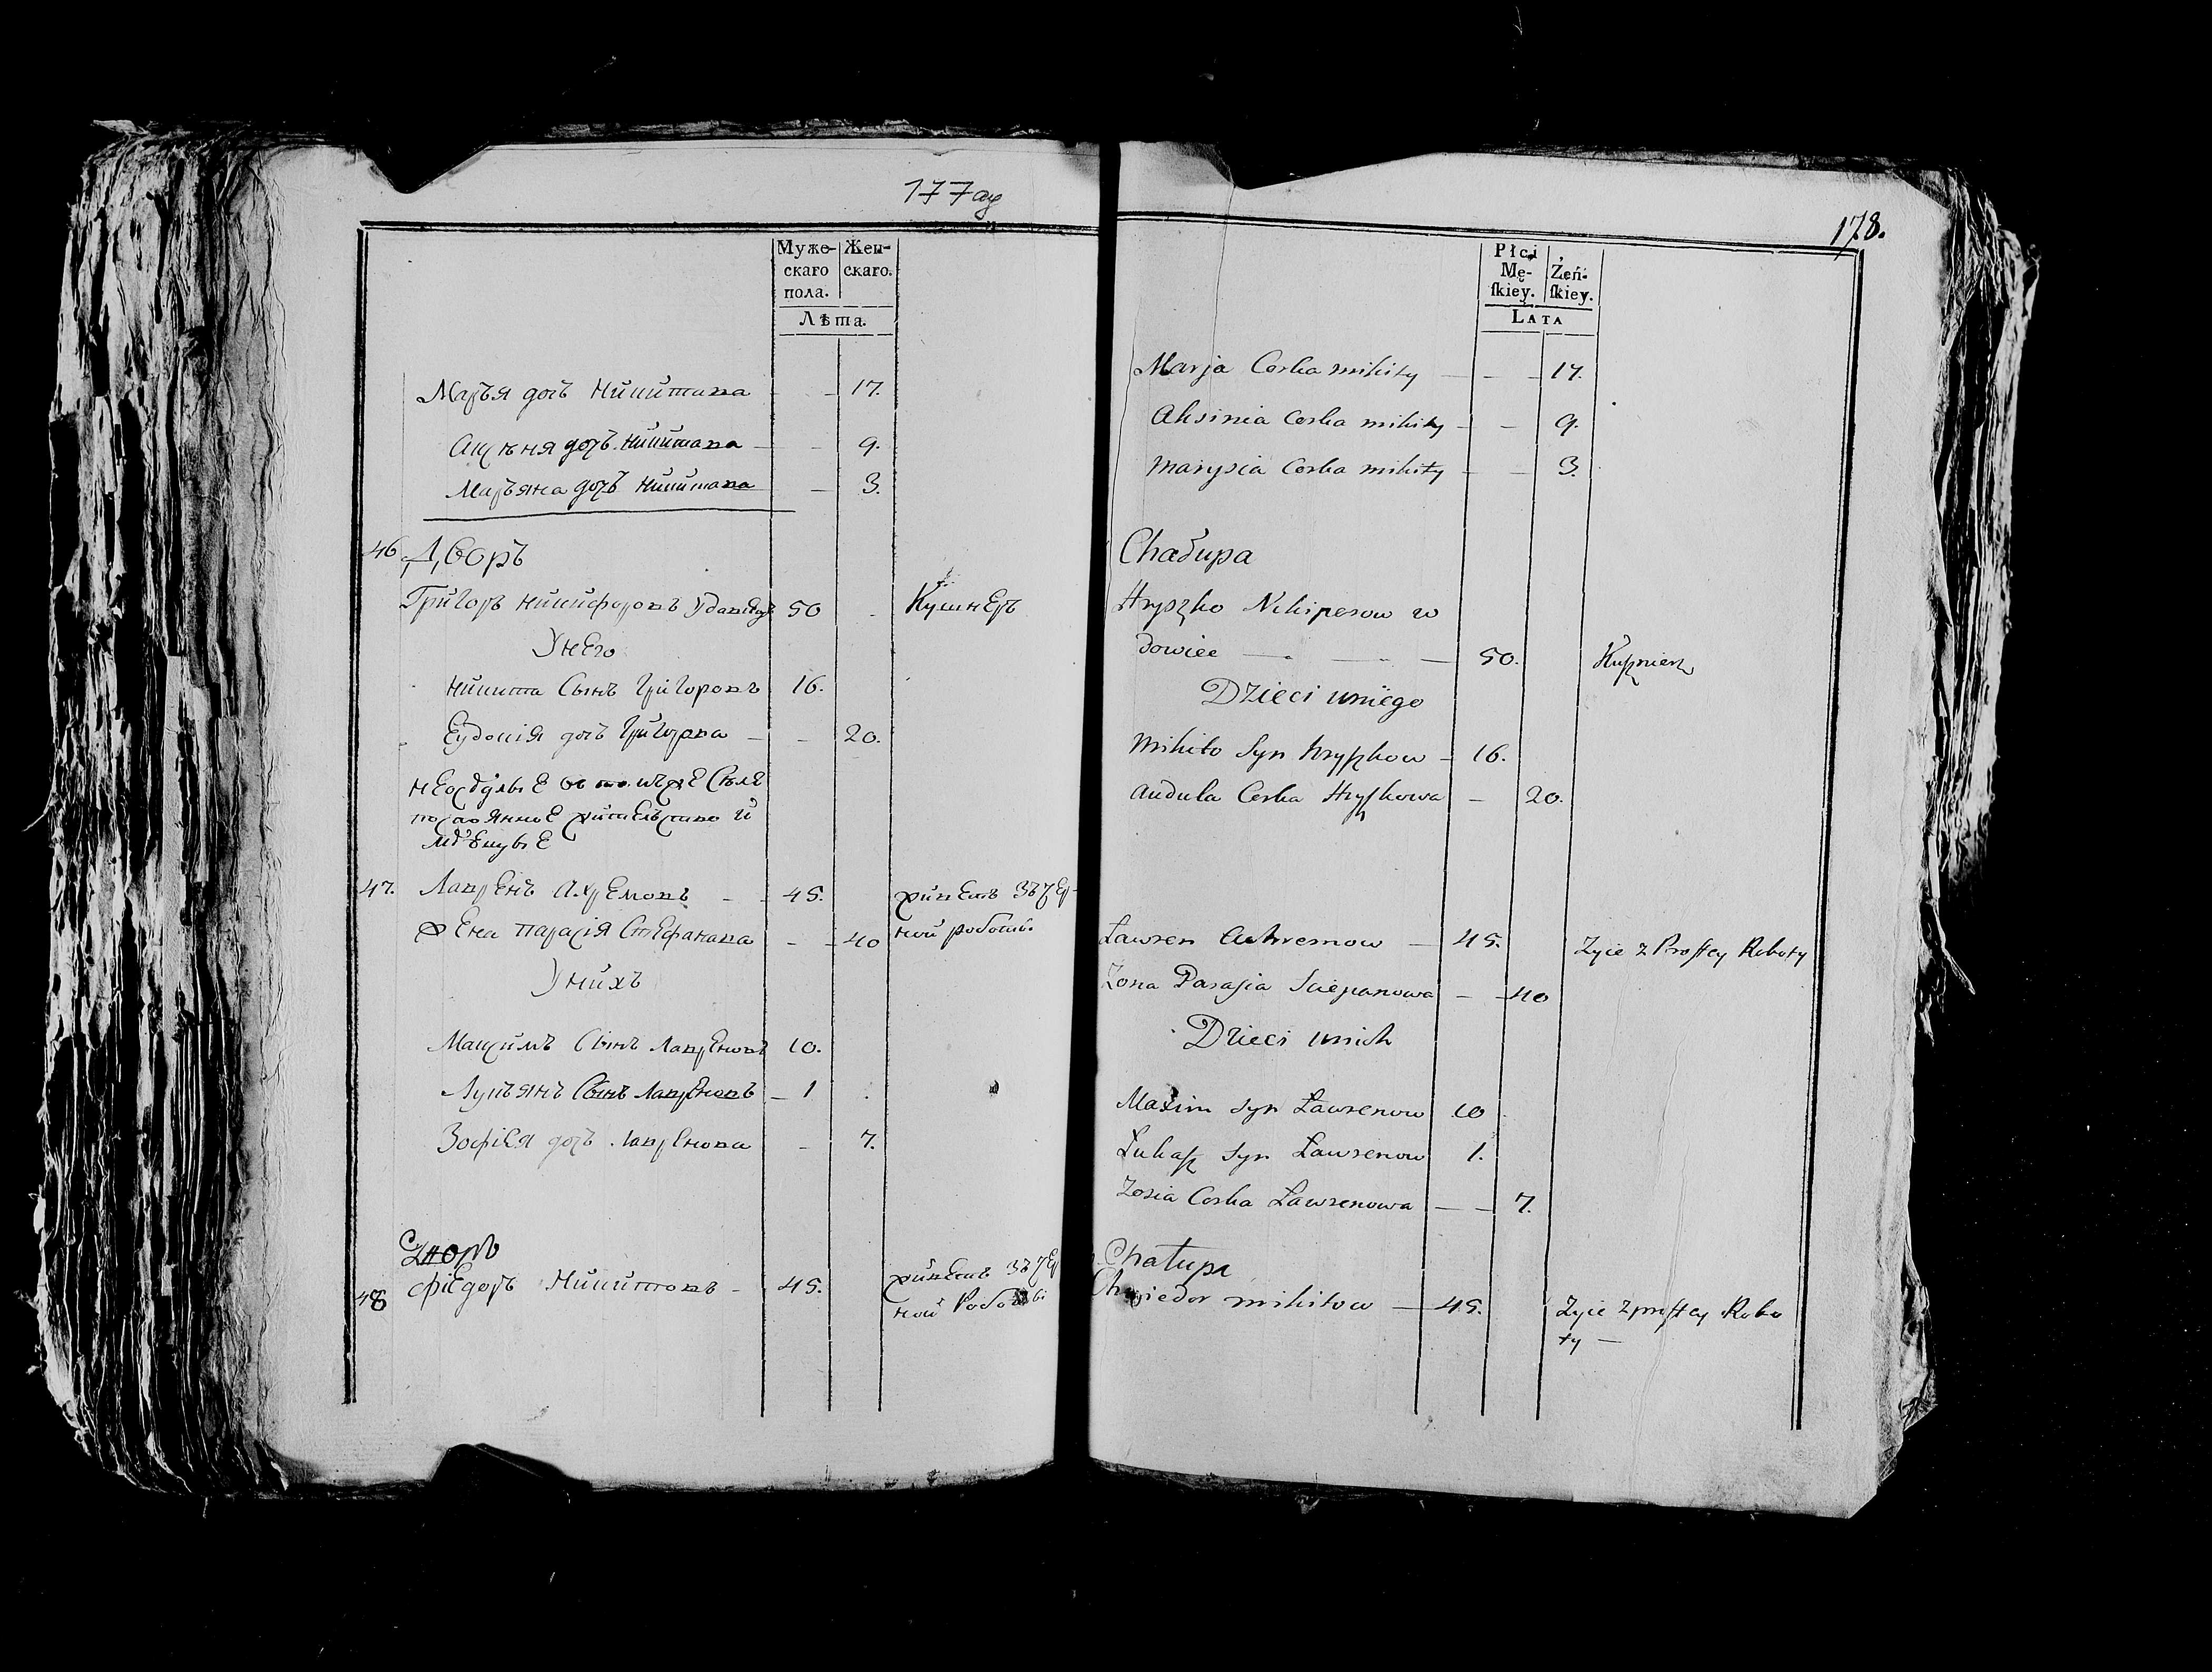 177 об
Муже-
скаго
пола.
Жен-
скаго.
Лѣта.
Марья дочь Никитина - - 17.
Аксѣня дочь Никитина - - 9.
Марьяна дочь Никитина - 3.
46. Дворъ
Григоръ Никифоровъ Удавецъ 50 Кушнеръ
У него
Никита Сынъ Григоровъ 16.
Еудокія дочь Григорова - - 20.
47. Лавренъ Ахремовъ - - 45. живетъ зъ чер-
ной роботы.
жена Парасія Стефанава - - 40
У нихъ
Максимъ Сынъ Лавреновъ 10.
Лукъянъ Сынъ Лавреновъ - 1
Зофіея дочь Лавренова - 7.
Дворъ
48 Фіедоръ Никитовъ - 45. живетъ зъ чер
ной Роботы
178.
Płci
Mę-
ſkiey.
Żeń-
ſkiey.
Lata
Marja Corka mikity - - 17.
Aksinia Corka mikity - - 9.
Marysia Corka mikity - - 3.
Chałupa
Hryszko Nikiperow w
dowiec - - 50. Kuſznierz
Dzieci uniego
Mikito Syn hryſzkow - 16.
Audula Corka Hryſzkowa - 20.
Ławren Achremow - 45. Zycie z Proſtey Roboty
Zona Paraſia Sciepanowa - - 40
Dzieci unich
Maxim Syn Ławrenow 10
Łukaſz Syn Ławrenow 1.
Zosia Corka Ławrenowa - - 7.
Chałupa
Chwiedor mikitow - 45. Zycie z proſtey Robo
ty -